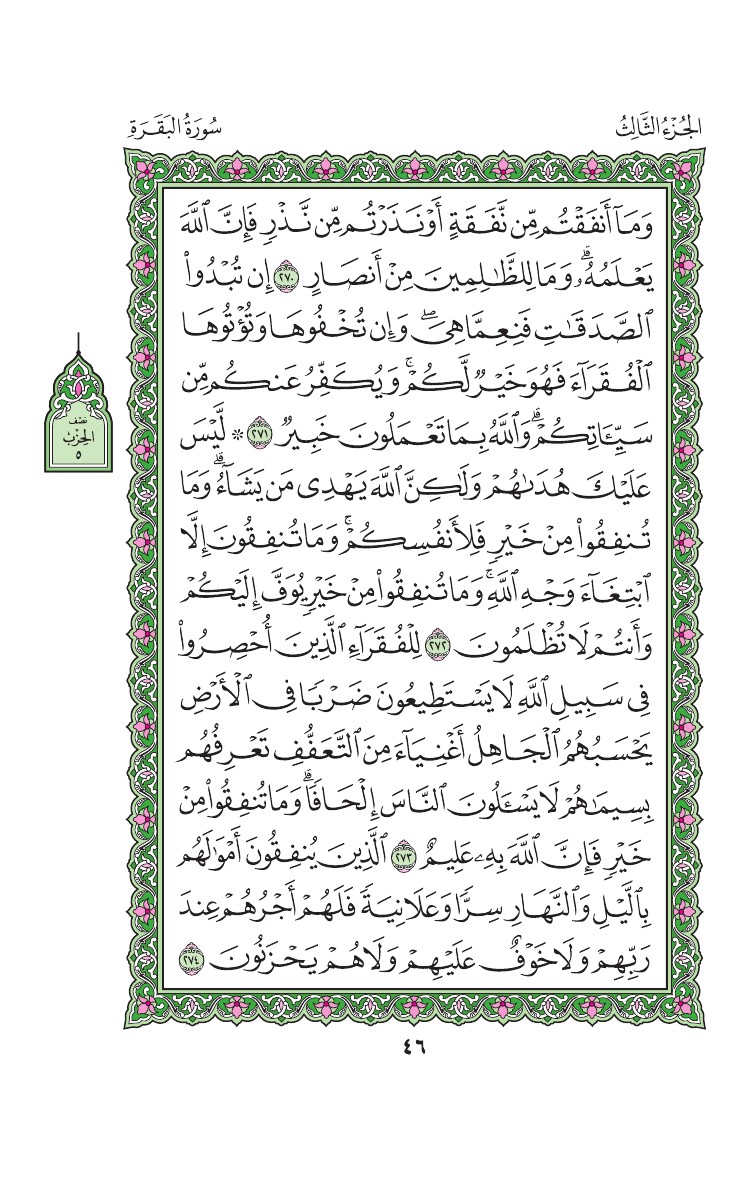 الجُزْءُ الثَّالِثُ
سُورَةُ البَقَرَةِ
وَمَآ أَنفَقۡتُم مِّن نَّفَقَةٍ أَوۡ نَذَرۡتُم مِّن نَّذۡرٖ فَإِنَّ ٱللَّهَ
يَعۡلَمُهُۥۗ وَمَا لِلظَّٰلِمِينَ مِنۡ أَنصَارٍ ٢٧٠ إِن تُبۡدُواْ
ٱلصَّدَقَٰتِ فَنِعِمَّا هِيَۖ وَإِن تُخۡفُوهَا وَتُؤۡتُوهَا
ٱلۡفُقَرَآءَ فَهُوَ خَيۡرٞ لَّكُمۡۚ وَيُكَفِّرُ عَنكُم مِّن
سَيِّـَٔاتِكُمۡۗ وَٱللَّهُ بِمَا تَعۡمَلُونَ خَبِيرٞ ٢٧١ * لَّيۡسَ
عَلَيۡكَ هُدَىٰهُمۡ وَلَٰكِنَّ ٱللَّهَ يَهۡدِي مَن يَشَآءُۗ وَمَا
تُنفِقُواْ مِنۡ خَيۡرٖ فَلِأَنفُسِكُمۡۚ وَمَا تُنفِقُونَ إِلَّا
ٱبۡتِغَآءَ وَجۡهِ ٱللَّهِۚ وَمَا تُنفِقُواْ مِنۡ خَيۡرٖ يُوَفَّ إِلَيۡكُمۡ
وَأَنتُمۡ لَا تُظۡلَمُونَ ٢٧٢ لِلۡفُقَرَآءِ ٱلَّذِينَ أُحۡصِرُواْ
فِي سَبِيلِ ٱللَّهِ لَا يَسۡتَطِيعُونَ ضَرۡبٗا فِي ٱلۡأَرۡضِ
يَحۡسَبُهُمُ ٱلۡجَاهِلُ أَغۡنِيَآءَ مِنَ ٱلتَّعَفُّفِ تَعۡرِفُهُم
بِسِيمَٰهُمۡ لَا يَسۡـَٔلُونَ ٱلنَّاسَ إِلۡحَافٗاۗ وَمَا تُنفِقُواْ مِنۡ
خَيۡرٖ فَإِنَّ ٱللَّهَ بِهِۦ عَلِيمٌ ٢٧٣ ٱلَّذِينَ يُنفِقُونَ أَمۡوَٰلَهُم
بِٱلَّيۡلِ وَٱلنَّهَارِ سِرّٗا وَعَلَانِيَةٗ فَلَهُمۡ أَجۡرُهُمۡ عِندَ
رَبِّهِمۡ وَلَا خَوۡفٌ عَلَيۡهِمۡ وَلَا هُمۡ يَحۡزَنُونَ ٢٧٤
نصف
الحِزْبِ
٥
٤٦